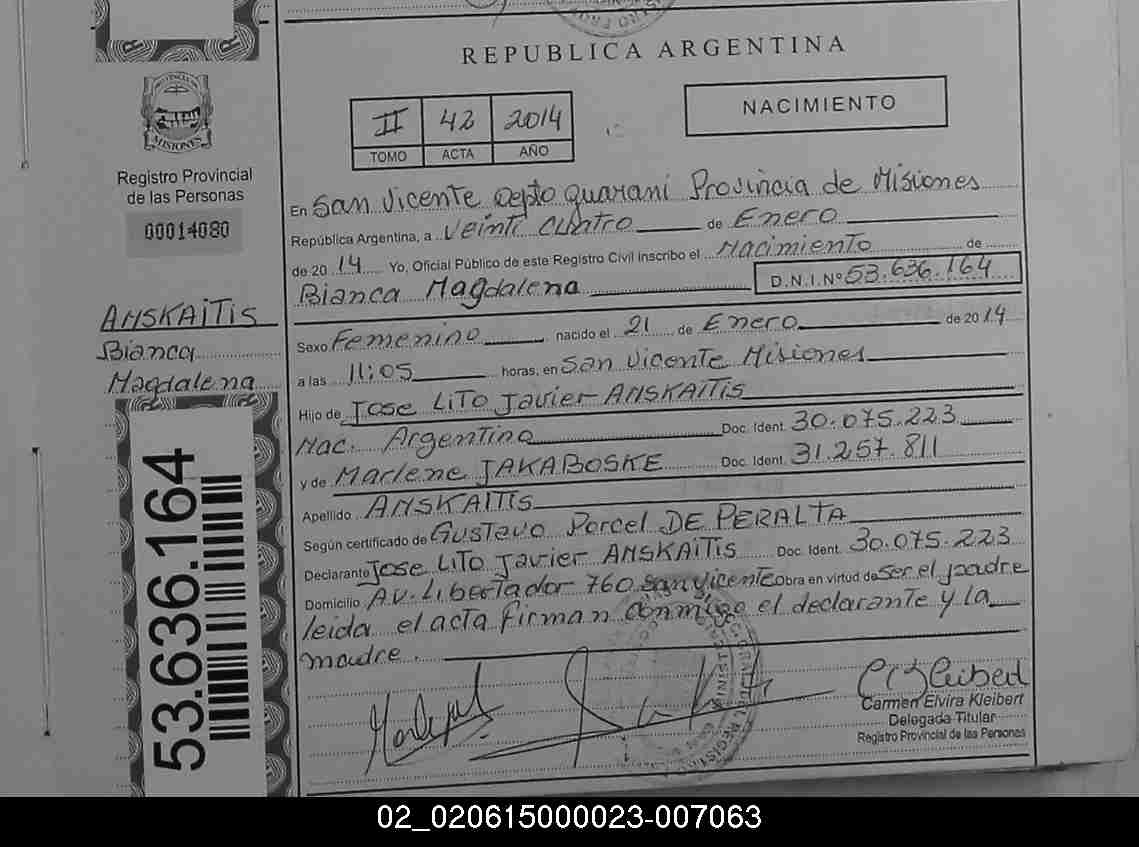 REPUBLICA ARGENTINA
PROVINCIA DE
MISIONES
Registro Provincial
de las Personas
00014080
II 42 2014
TOMO ACTA AÑO
NACIMIENTO
En San Vicente Depto Guarani Provincia de Misiones
República Argentina, a Veinti Cuatro de Enero
de 2014 Yo, Oficial Público de este Registro Civil inscribo el Nacimiento de
Bianca Magdalena D.N.I.Nº 53.636.164
ANSKAITIS
Bianca
Magdalena
Sexo Femenino nacido el 21 de Enero de 2014
a las 11:05 horas, en San Vicente Misiones
Hijo de Jose LiTo Javier ANSKAITIS
Nac. Argentino Doc. Ident. 30.075.223
y de Marlene JAKABOSKE Doc. Ident. 31.257.811
Apellido ANSKAITIS
Según certificado de Gustavo Porcel DE PERALTA
Declarante Jose LiTo Javier ANSKAITIS Doc. Ident. 30.075.223
Domicilio AV. Libertador 760 San Vicente obra en virtud de ser el padre
leida el acta firman conmigo el declarante y la
madre.
53.636.164
Carmen Elvira Kleibert
Delegada Titular
Registro Provincial de las Personas
02_020615000023-007063